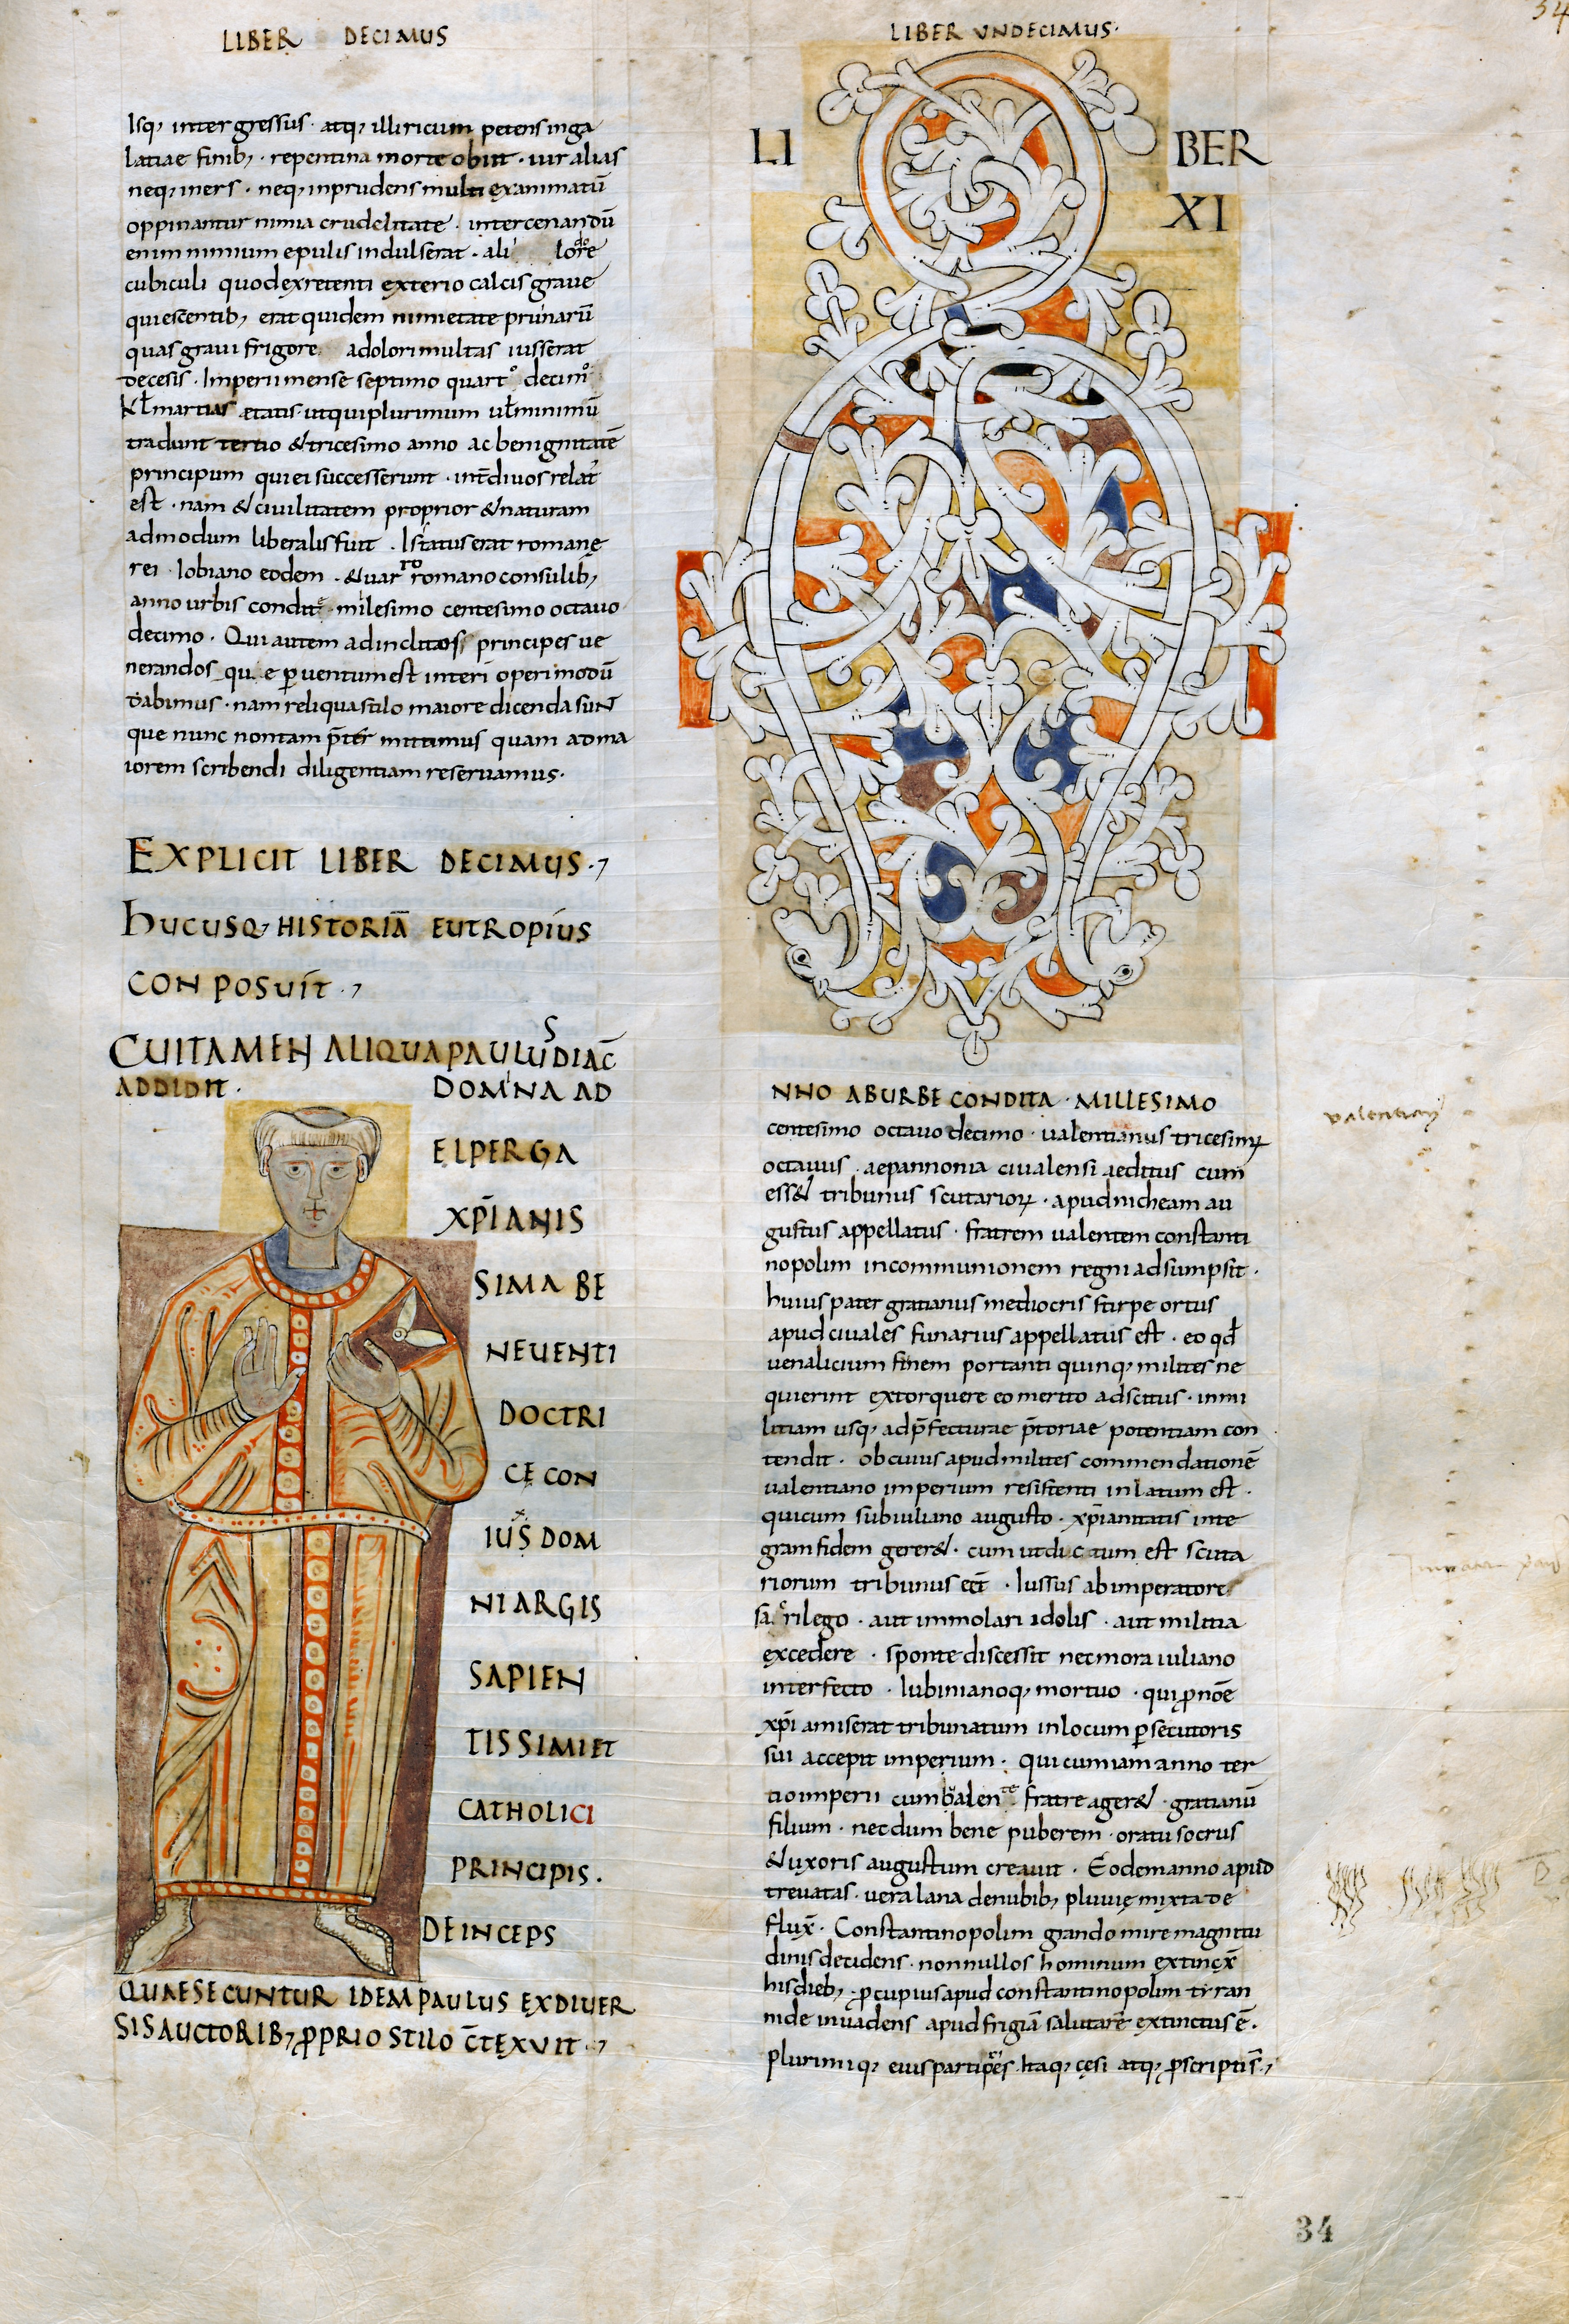 LIBER DECIMUS
Isq; intergressus · atq; illiricum petens inga
latiae finib; · repentina morte obiit · uir alias
neq; iners · neq; inprudens multi exanimatū
oppinantur nimia crudelitate · inter cenandū
enim nimium epulis indulserat · ali lore
cubiculi quod ex retenti exterio calcis graue
quiescentib; erat quidem nimietate prunarū
quas graui frigore adolori multas iusserat
decesis · Imperii mense septimo quarto decimo
kł martias ętatis utqui plurimum uł minimū
tradunt tertio & tricesimo anno ac benignitatē
principum qui ei successerunt · int̄ diuos relat̄
est · nam & ciuilitatem proprior & naturam
admodum liberalis fuit · Is status erat romanę
rei · Iobiano eodem · & uarro romano consulib;
anno urbis conditę · milesimo centesimo octauo
decimo · Qui autem ad inclitos principes ue
nerandos qu e ꝑuentum est interī operi modū
dabimus · nam reliqua stilo maiore dicenda suNT
que nunc non tam p̄ter mittimus quam ad ma
iorem scribendi diligentiam reseruamus ·
EXPLICIT LIBER DECIMUS ·,
hUCUSQ; HISTORIĀ EUTROPIUS
CONPOSUIT ·,
CUI TAMEN ALIQUA PAULUS DIAC̄
ADDIDIT · DOMNA AD
ELPERGA
XP̄IANIS
SIMA BE
NEUENTI
DOCTRI
CE CON
IUS DOM
NI ARGIS
SAPIEN
TISSIMI ET
CATHOLICI
PRINCIPIS ·
DEINCEPS
QUAE SECUNTUR IDEM PAULUS EX DIUER
SIS AUCTORIB; ꝓPRIO STILO C̄TEXUIT ·,
LIBER UNDECIMUS ·
34
LI BER
XI
NNO AB URBE CONDITA · MILLESIMO
centesimo octauo decimo · ualentianus tricesimꝝ
octauus · aepannonia ciualensi aeditus cum
ess& tribunus scutarioꝝ · apud nicheam au
gustus appellatus · fratrem ualentem constanti
nopolim in communionem regni adsumpsit ·
huius pater gratianus mediocris stirpe ortus
apud ciuales funarius appellatus est · eo qđ
uenalicium finem portanti quinq; milites ne
quierint extorquere eo merito adscitus · inmi
litiam usq; ad p̄fecturae p̄toriae potentiam con
tendit · ob cuius apud milites commendationē
ualentiano imperium resistenti inlatum est ·
qui cum sub iuliano augusto · xp̄ianitatis inte
gram fidem gerer& · cum ut dictum est scuta
riorum tribunus eēt · Iussus ab imperatore
sacrilego · aut immolari idolis · aut militia
excedere · sponte discessit nec mora iuliano
interfecto · Iubinianoq; mortuo · qui ꝓ nōe
xp̄i amiserat tribunatum in locum ꝑsecutoris
sui accepit imperium · Qui cum iam anno ter
tio imperii cum ualente fratre ager& · gratianū
filium · necdum bene puberem · oratu socrus
& uxoris augustum creauit · Eodem anno apud
treuatas · uera lana denubib; pluuię mixta de
flux̄ · Constantinopolim grando mire magnitu
dinis decidens · nonnullos hominum extinx̄
his dieb; · ꝓcupius apud constantinopolim tyran
nide inuadens apud frigiā salutarē extinctus ē ·
Plurimiq; eius participes · Itaq; cęsi atq; ꝓscriptis̄ ·,
34